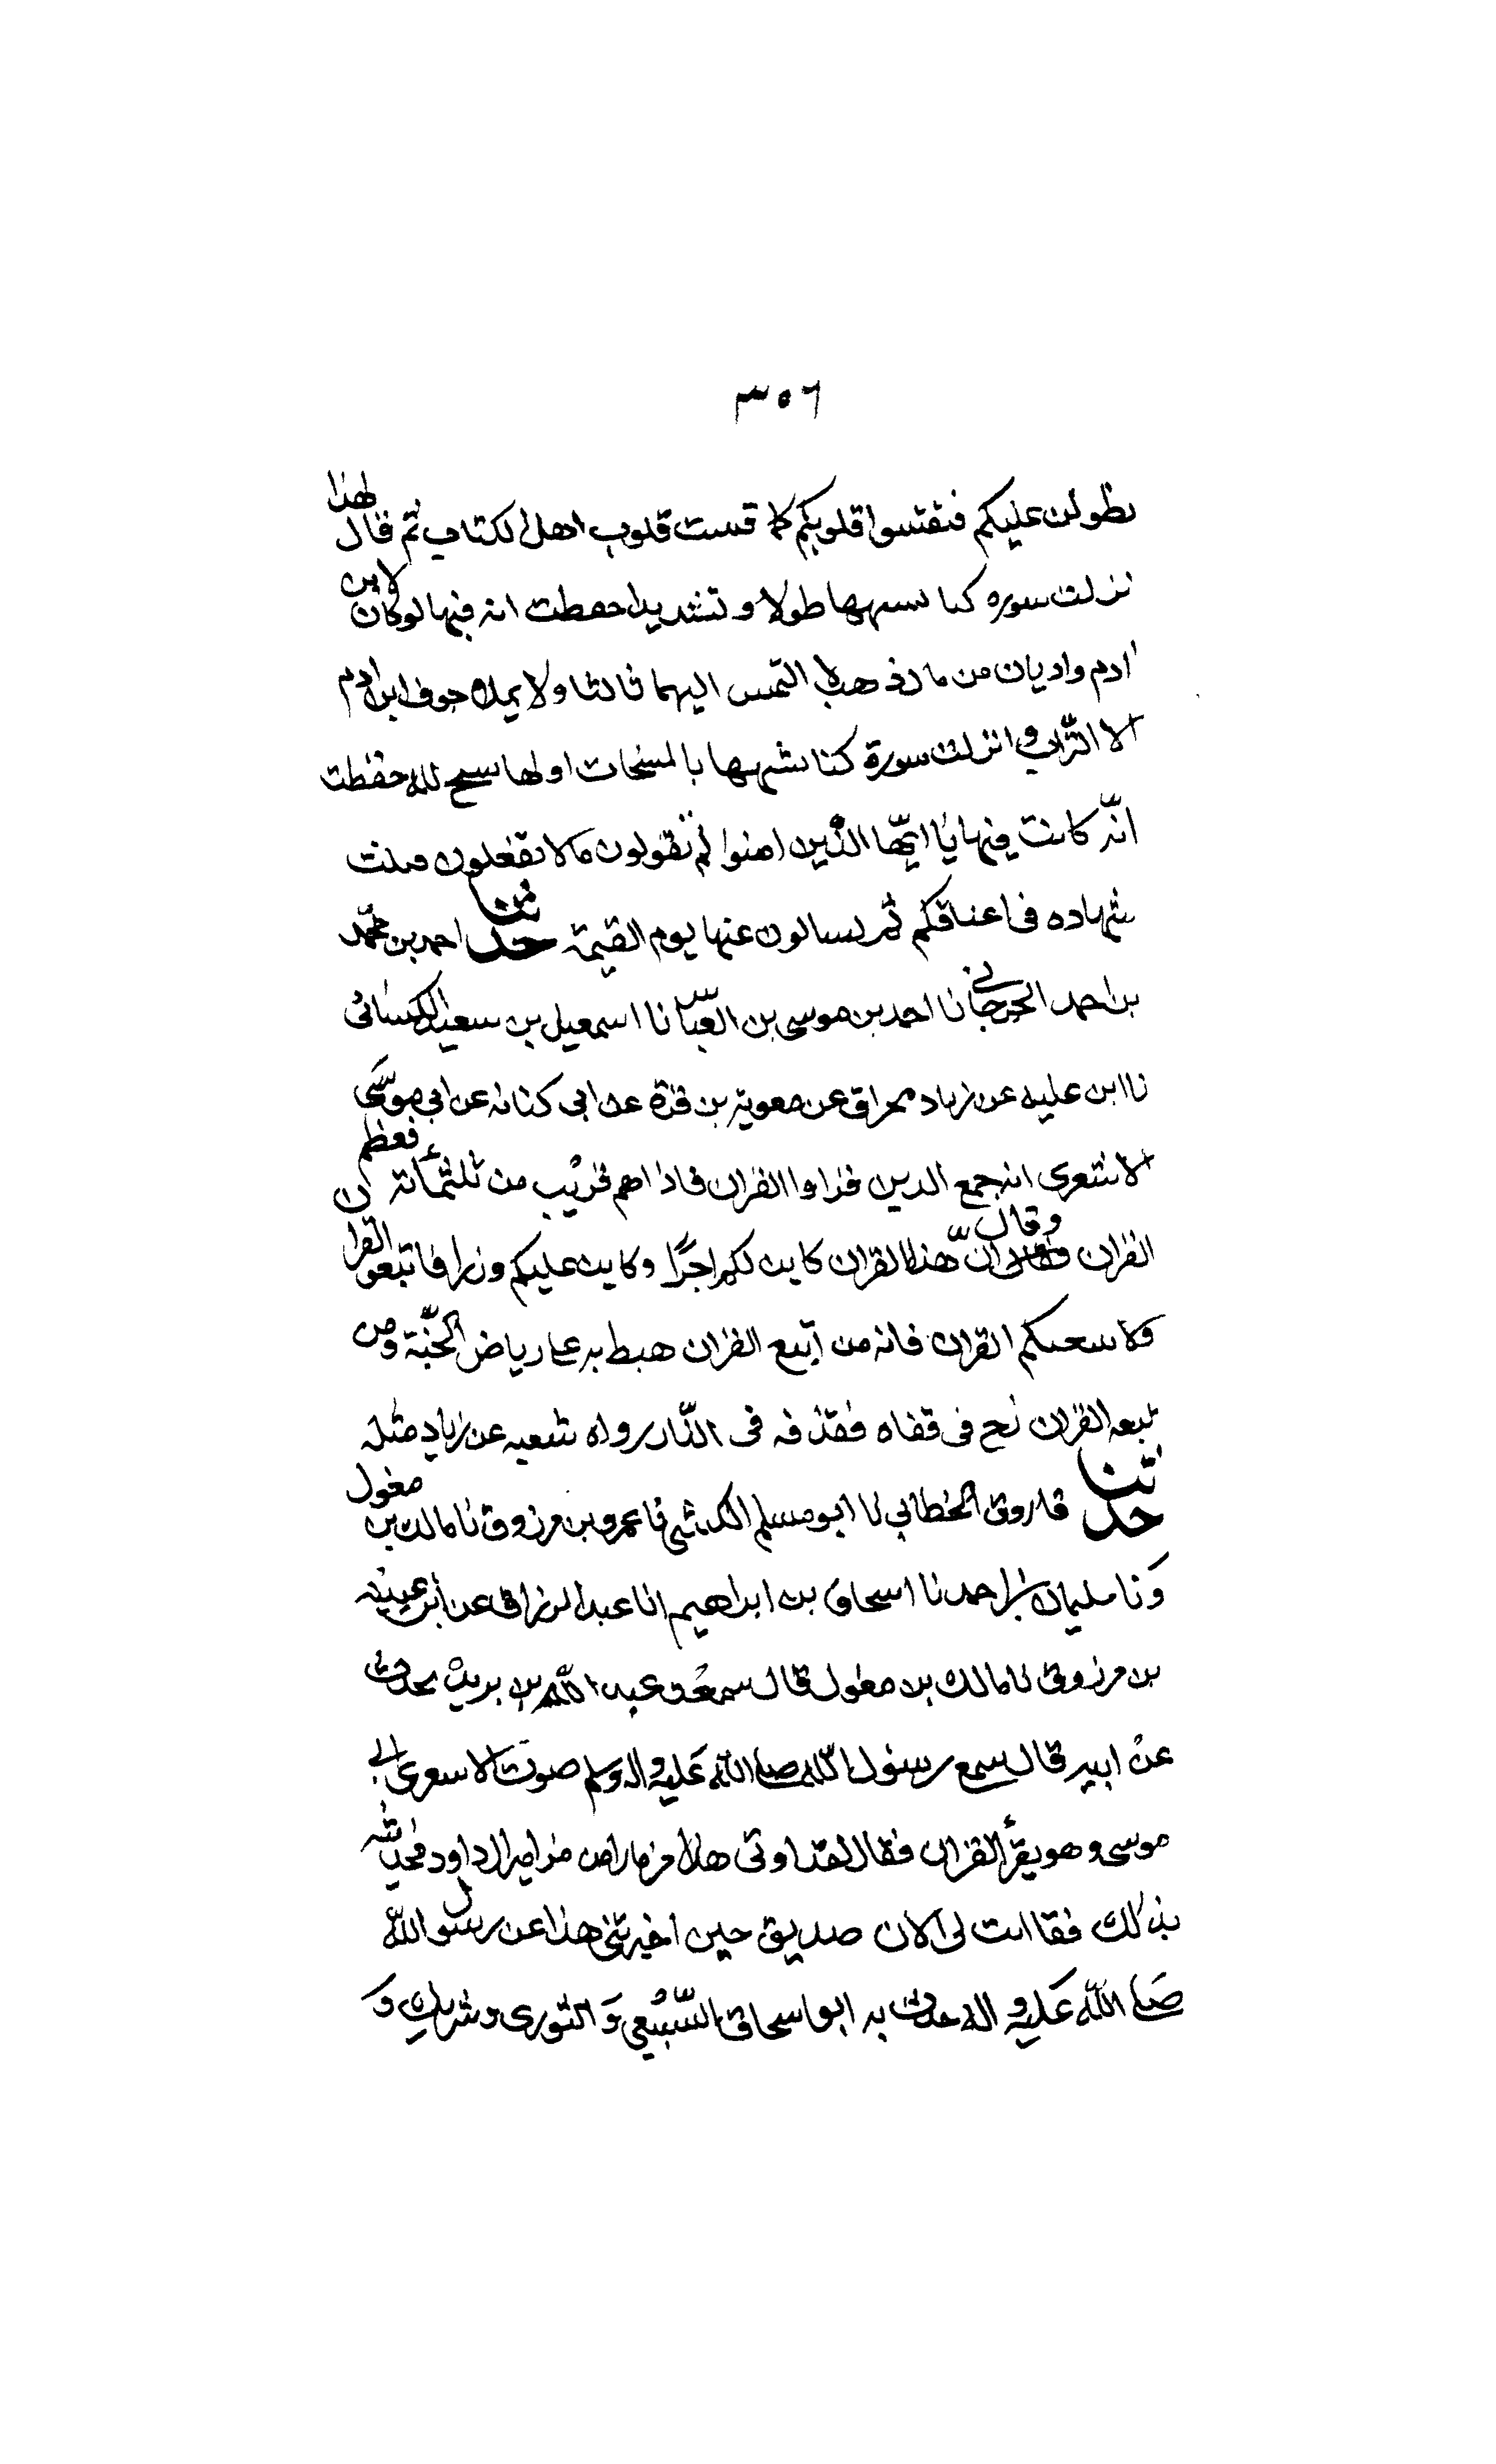 ٣٥٦
يطولن عليكم فتقسوا قلوبكم كما قست قلوب اهل الكتاب ثم قال لهذا
نزلت سورة كنا نشبهها طولا و تشديدا حفظت انه فيها لو كان لابن
ادم واديان من ما ذهب لالتمس اليهما ثالثا ولا يملا جوف ابن ادم
الا التراب و انزلت سورة كنا نشبهها بالمسبحات اولها سبح لله حفظت
انّه كانت فيها يا ايّها الذين امنوا لم تقولون ما لا تفعلون فتكتب
شهادة فى اعناقكم ثم يسالون عنها يوم القيمة حدثنا احمد بن محمّد
بن احمد الجرجاني نا احمد بن موسى بن العبّاس نا اسمعيل بن سعيد الكسائى
نا ابن علية عن زياد مخراق عن معوية بن قرة عن ابى كنانة عن ابى موسى
الاشعرى انه جمع الدين قراوا القران فاذا هم قريب من ثلثمائة فعظم
القران وقال ان هذا القران كاين لكم اجرًا وكاين عليكم وزرا فاتبعوا القران
ولا يتبعنكم القران فانه من اتبع القران هبط به على رياض الجنّة ومن
تبعه القران زخ فى قفاه فقذفه فى النّار رواه شعبه عن زياد مثله
حدثنا فاروق الخطابي نا ابو مسلم الكشى نا عمرو بن مرزوق نا مالك بن مغول
وَنا سليمان بن احمد نا اسحاق بن ابراهيم انا عبد الرزاق عن ابن عيينه
بن مرزوق نا مالك بن مغول قال سمعت عبد الله بن بريدة يحدث
عن ابيه قال سمع رسول الله صلى الله عليه واله وسلم صوت الاشعرى ابي
موسى وهو يقرأ القران فقال لقد اوتى هذا مزمارا من مزامير ال داود فحدثته
بذلك فقال انت لى الان صديق حين اخبرتنى هذا عن رسول الله
صلى الله عليه واله حدث به ابو اسحاق السّبيعي وَ الثورى و شريك وَ